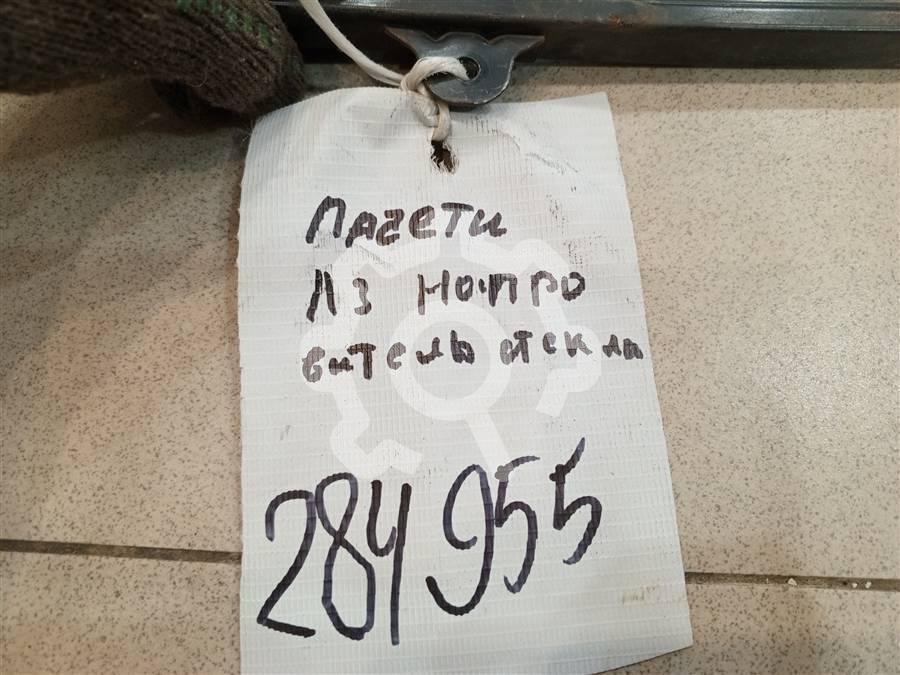 Пагети
ЛЗ напро
витель стекло
284 955